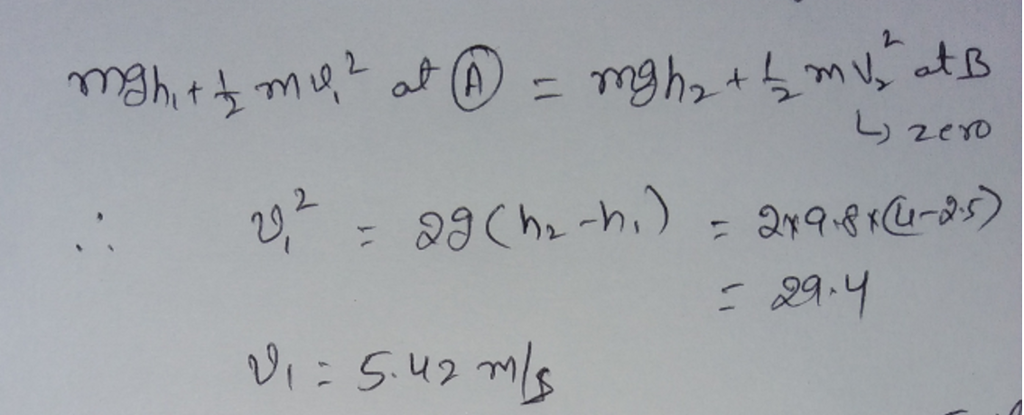 mgh₁ + ½ mv₁² at Ⓐ = mgh₂ + ½ mv₂² at B
↳ zero
∴ v₁² = 2g(h₂-h₁) = 2×9.8×(4-2.5)
= 29.4
v₁ = 5.42 m/s